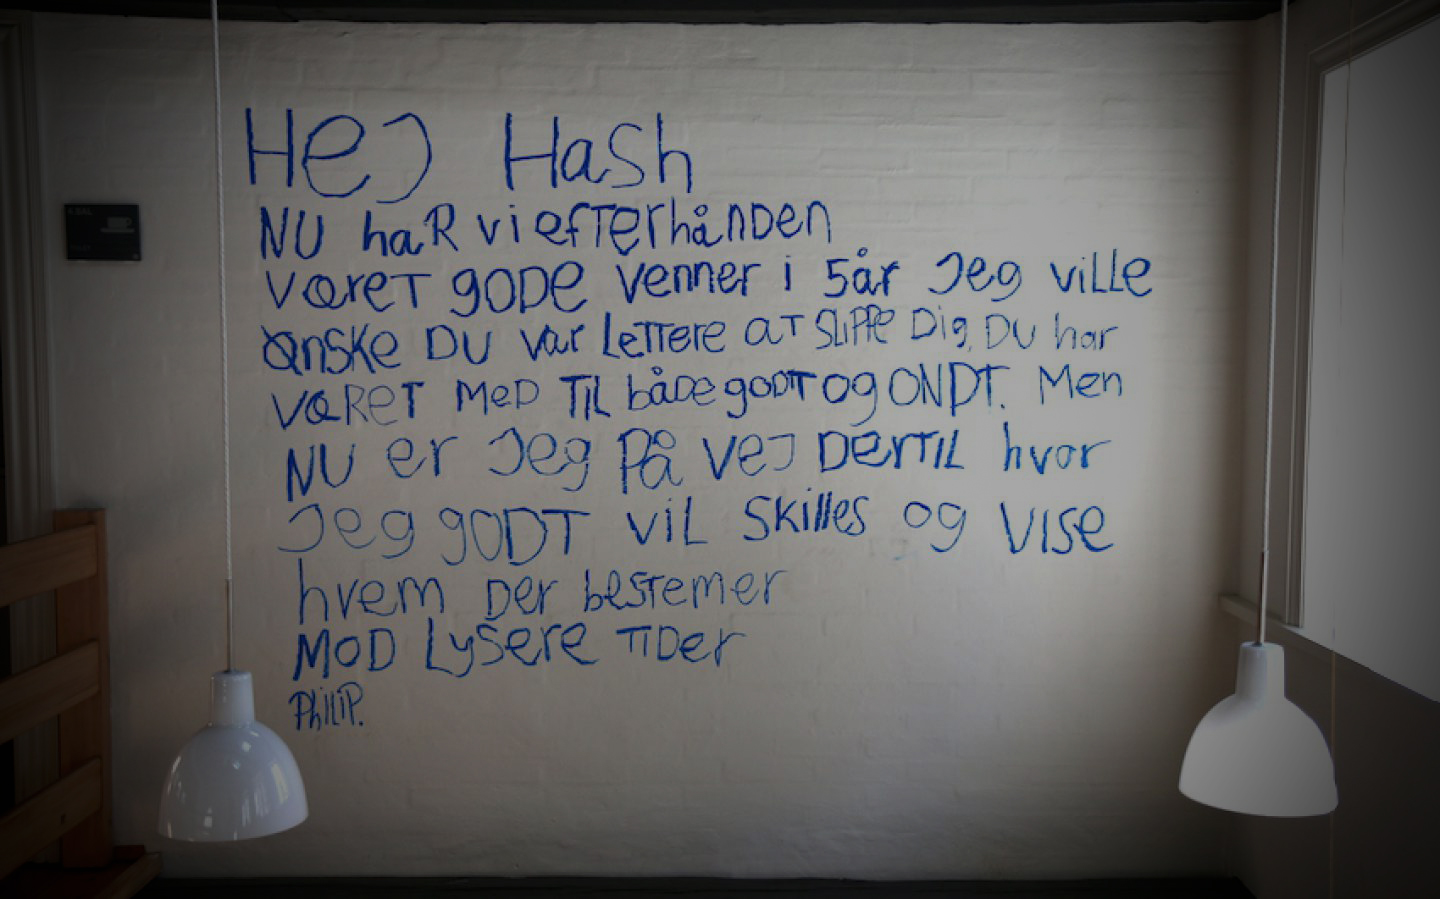 Hej Hash
NU haR vi efterhånden
været gode venner i 5 år Jeg ville
ønske DU var Lettere at slippe Dig. DU har
været Med Til både godt og ONDT. Men
NU er Jeg På vej Dertil hvor
Jeg godt vil Skilles og vise
hvem Der bestemer
Mod Lysere Tider
PhiliP.